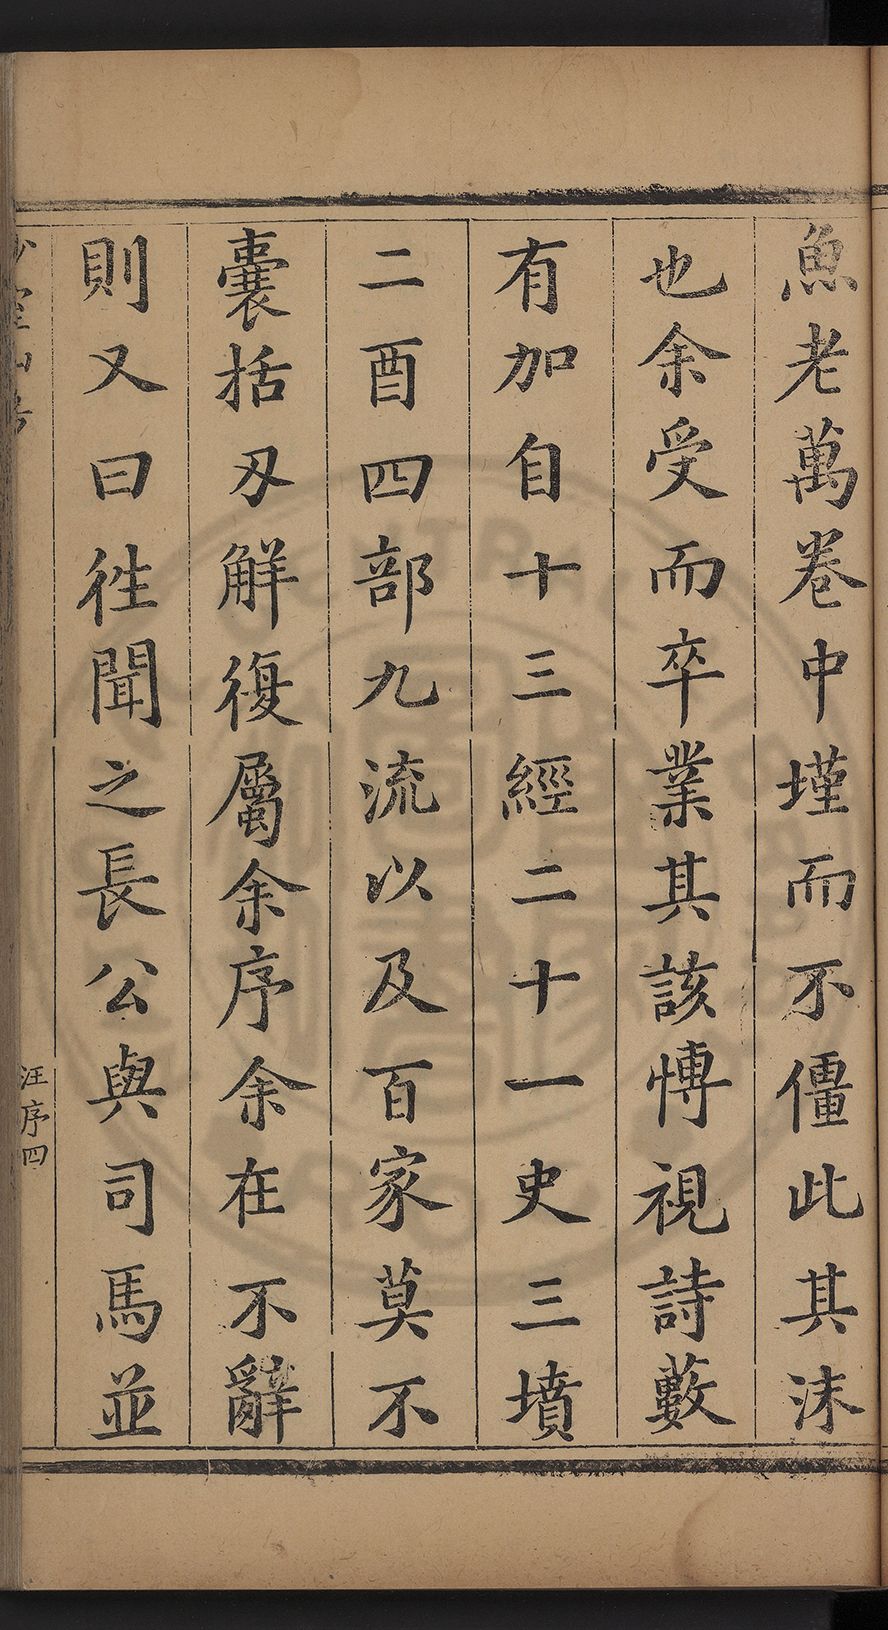 魚老萬卷中墐而不僵此其沫
也余受而卒業其該愽視詩藪
有加自十三經二十一史三墳
二酉四部九流以及百家莫不
囊括刄觧復屬余序余在不辭
則又曰徃聞之長公與司馬並
汪序四